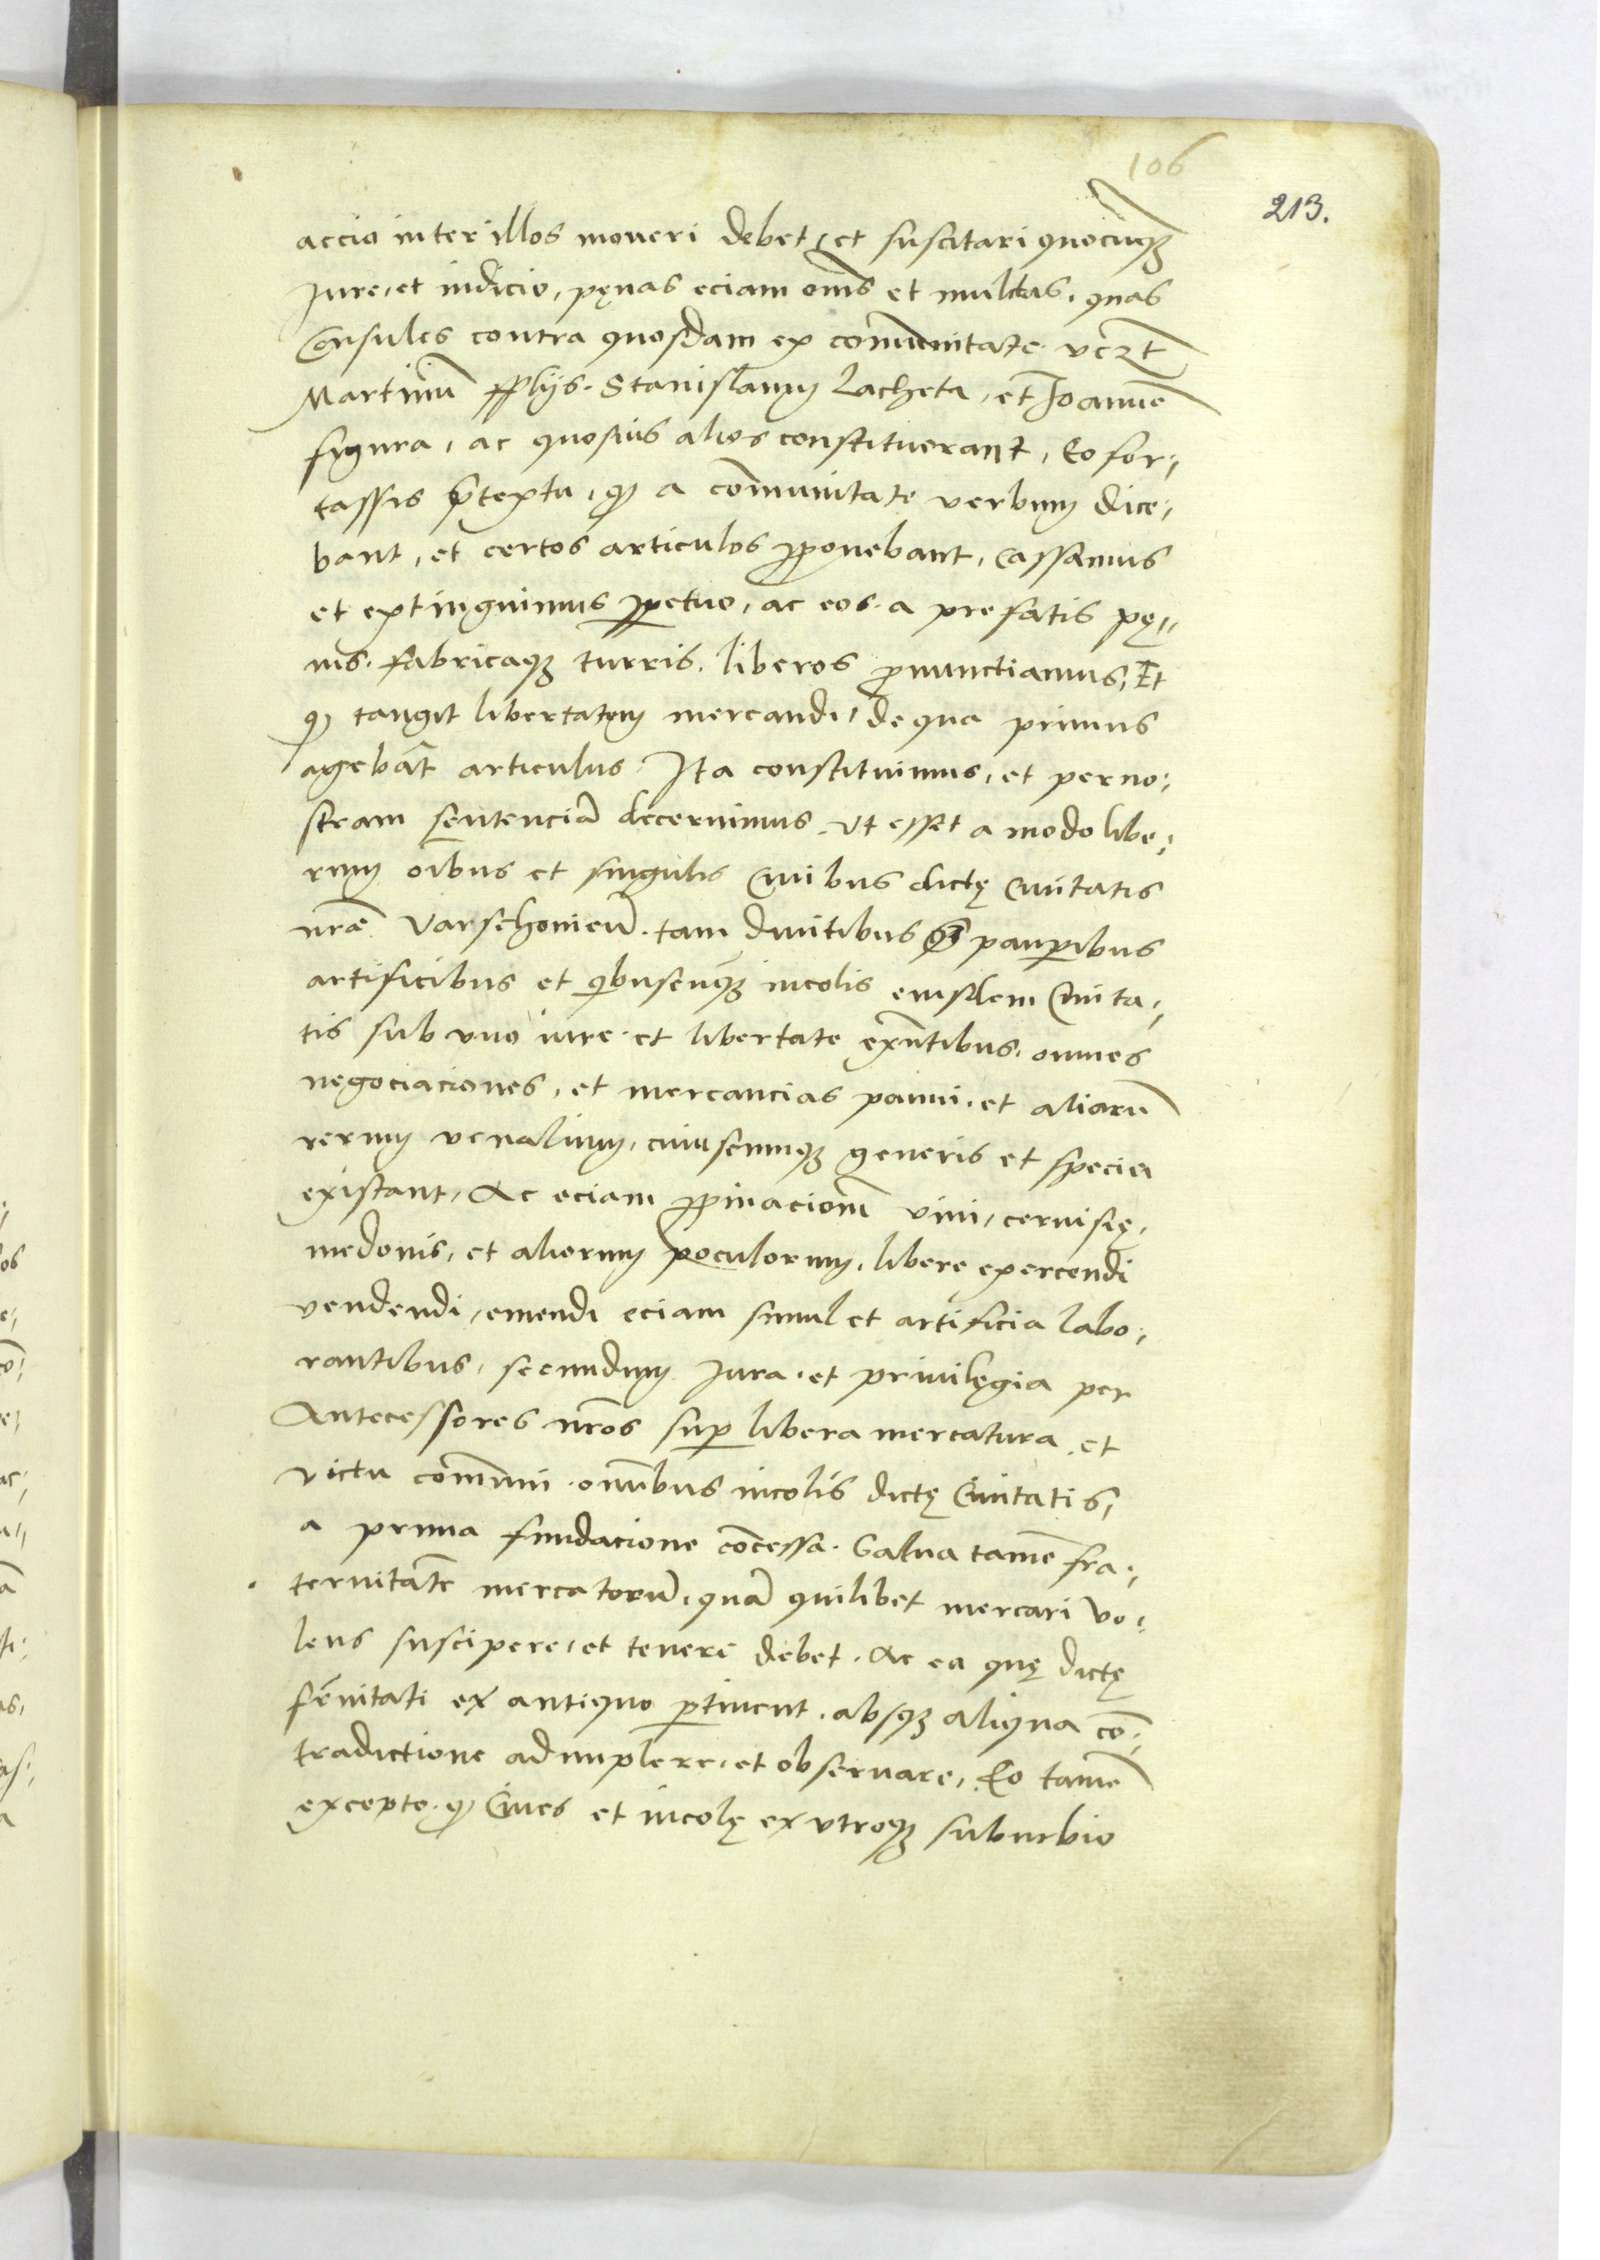 106
213.
accio inter illos moveri debet, et suscitari quocunqꝫ
Jure, et iudicio, pęnas eciam om̄s et mulctas, quas
Consules contra quosdam ex com̄unitate vcꝫt
Martinū Stanislaum Lacheta, et Joannē
figura, ac quosuis alios constituerant, Eo for,
tassis p̄textu, ꝙ a com̄unitate verbum dice,
bant, et certos articulos ꝓponebant, Cassamus
et extinguimus ꝑpetuo, ac eos a prefatis pę,,
nis, fabricaqꝫ turris, liberos ꝓnunctiamus, Et
ꝙ tangit libertatem mercandi, de qua primus
agebāt articulus Ita constituimus, et per no,
stram sentenciā decernimus, Ut esset a modo libe,
rum oībus et singulis Ciuibus dictę Ciuitatis
nr̄æ Varschouieñ, tam diuitibus ꝙ̄ pauꝑibus
artificibus et qibuscunqꝫ incolis eiusdem Ciuita,
tis sub vno iure et libertate exn̄tibus, omnes
negociaciones, et mercancias panni, et aliarū
rerum venalium, cuiuscunqꝫ generis et speciei
existant, Ac eciam ꝓpinacionē vini, ceruisię,
medonis, et aliorum poculorum, libere exercendi
vendendi, emendi eciam simul et artificia labo,
rantibus, secundum Jura et priuilęgia per
Antecessores nr̄os suꝑ libera mercatura, et
victu com̄uni omībus incolis dictę Ciuitatis,
a prima fundacione cōcessa. Salua tamē fra,
ternitate mercatorū, quā quilibet mercari vo,
lens suscipere, et tenere debet. Ac ea quę dictę
fr̄nitati ex antiquo ꝑtinent, absqꝫ aliqua cō,
tradictione adimplere, et obseruare, Eo tamē
excepto ꝙ Ciues et incolę ex vtroqꝫ suburbio